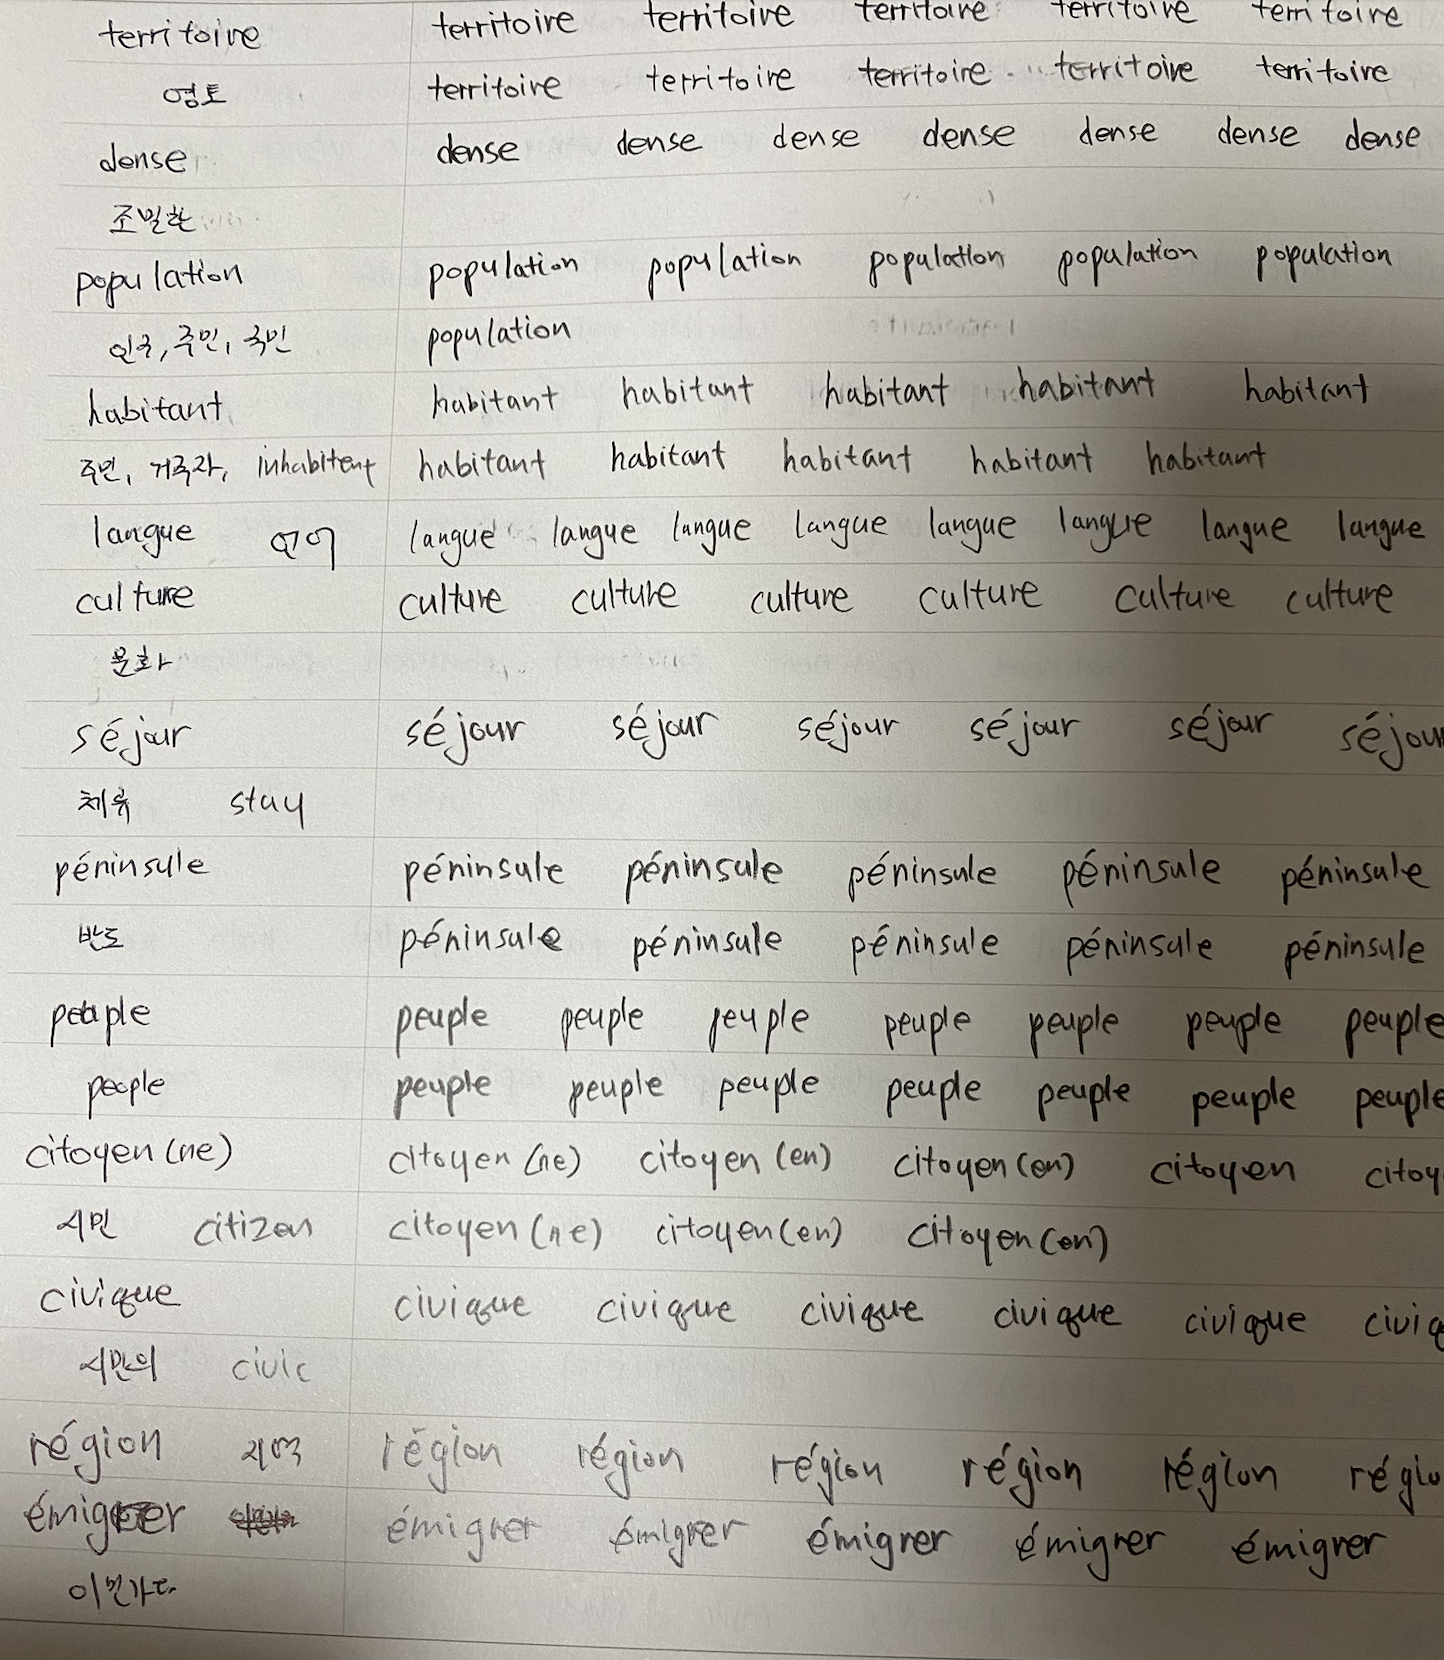 territoire territoire territoire territoire territoire territoire
영토 territoire territoire territoire territoire territoire
dense dense dense dense dense dense dense dense
조밀한
population population population population population population
인구, 주민, 국민 population
habitant habitant habitant habitant habitant habitant
주민, 거주자, inhabitent habitant habitant habitant habitant habitant
langue 언어 langue langue langue langue langue langue langue langue
culture culture culture culture culture culture culture
문화
séjour séjour séjour séjour séjour séjour séjou
체류 stay
péninsule péninsule péninsule péninsule péninsule péninsule
반도 péninsule péninsule péninsule péninsule péninsule
peuple peuple peuple peuple peuple peuple peuple peuple
people peuple peuple peuple peuple peuple peuple peuple
citoyen (ne) citoyen (ne) citoyen (en) citoyen (en) citoyen citoy
시민 citizen citoyen (ne) citoyen (en) citoyen (en)
civique civique civique civique civique civique civiq
시민의 civic
région 지역 région région région région région régio
émigrer émigrer émigrer émigrer émigrer émigrer
이민가다